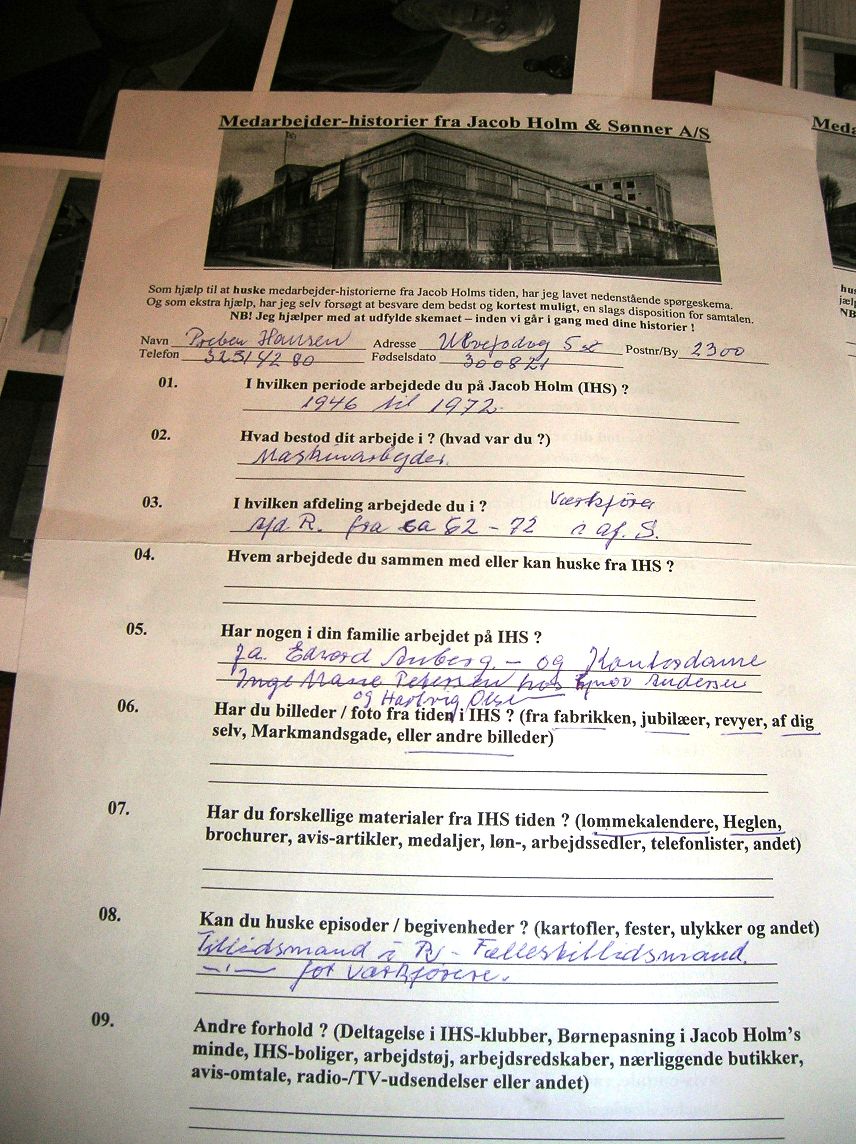 Medarbejder-historier fra Jacob Holm & Sønner A/S
Meda
Som hjælp til at huske medarbejder-historierne fra Jacob Holms tiden, har jeg lavet nedenstående spørgeskema.
Og som ekstra hjælp, har jeg selv forsøgt at besvare dem bedst og kortest muligt, en slags disposition for samtalen.
NB! Jeg hjælper med at udfylde skemaet – inden vi går i gang med dine historier !
Navn Preben Hansen Adresse 5 Postnr/By 2300
Telefon 32514280 Fødselsdato 300821
01. I hvilken periode arbejdede du på Jacob Holm (IHS) ?
1946 til 1972
02. Hvad bestod dit arbejde i ? (hvad var du ?)
Maskinarbejder
03. I hvilken afdeling arbejdede du i ? Værkfører
afd R. fra ca 62 - 72 i af. S.
04. Hvem arbejdede du sammen med eller kan huske fra IHS ?
05. Har nogen i din familie arbejdet på IHS ?
Ja. Edvard - og Kontordame
Inge Marie Petersen hos Andersen
og Hartvig Olsen
06. Har du billeder / foto fra tiden i IHS ? (fra fabrikken, jubilæer, revyer, af dig
selv, Markmandsgade, eller andre billeder)
07. Har du forskellige materialer fra IHS tiden ? (lommekalendere, Heglen,
brochurer, avis-artikler, medaljer, løn-, arbejdssedler, telefonlister, andet)
08. Kan du huske episoder / begivenheder ? (kartofler, fester, ulykker og andet)
Tillidsmand i R - Fællestillidsmand.
—"— for værkførere.
09. Andre forhold ? (Deltagelse i IHS-klubber, Børnepasning i Jacob Holm's
minde, IHS-boliger, arbejdstøj, arbejdsredskaber, nærliggende butikker,
avis-omtale, radio-/TV-udsendelser eller andet)